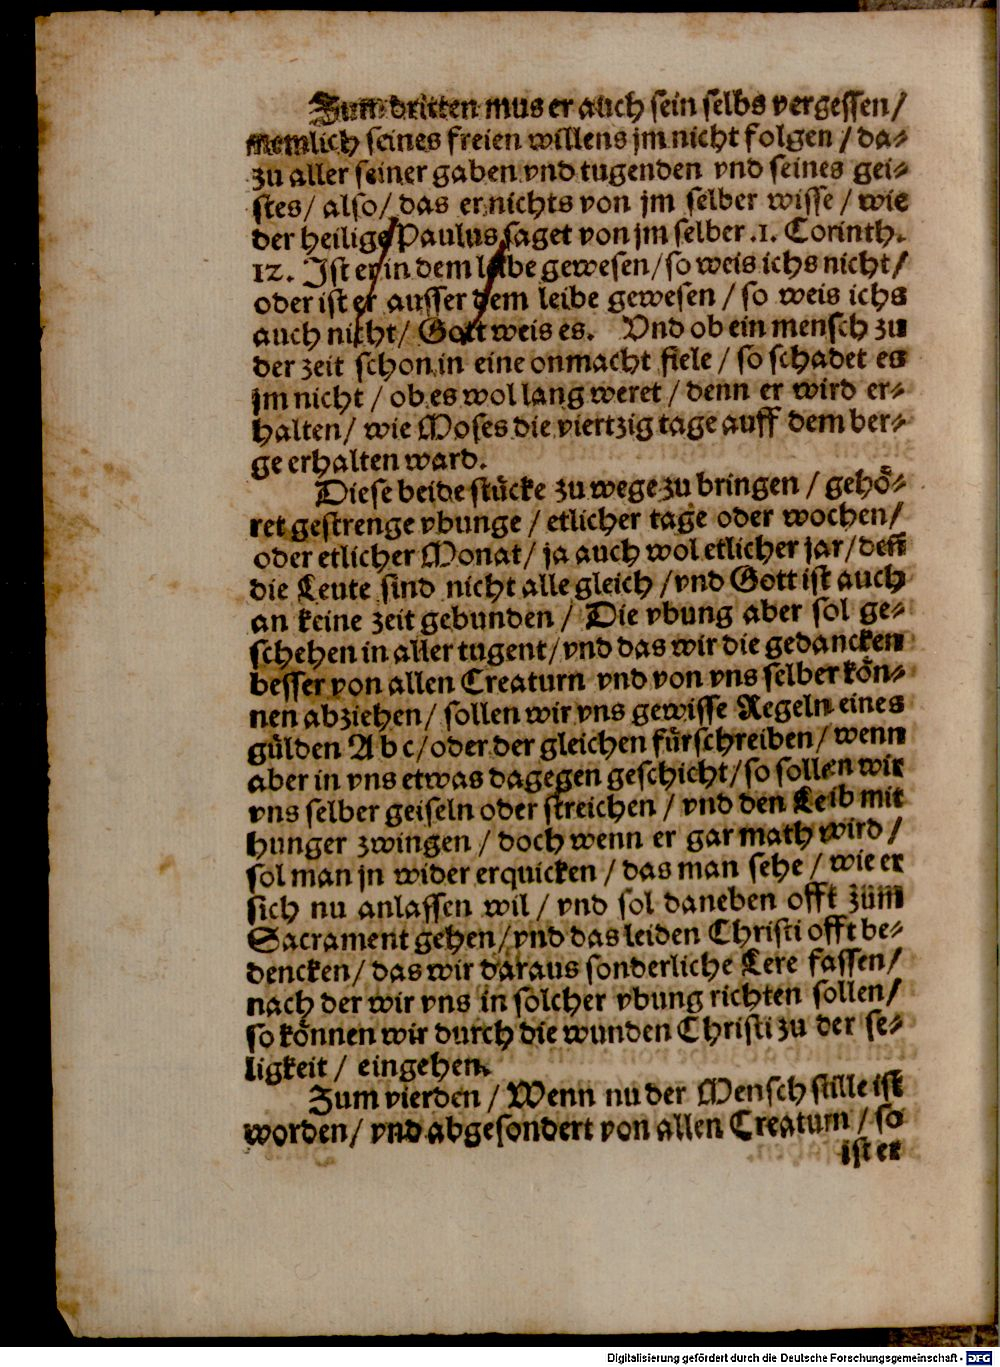 Zum dritten mus er auch sein selbs vergessen /
nemlich seines freien willens jm nicht folgen / da⸗
zu aller seiner gaben vnd tugenden vnd seines gei⸗
stes / also / das er nichts von jm selber wisse / wie
der heilige Paulus saget von jm selber .1. Corinth.
12. Ist er in dem leibe gewesen / so weis ichs nicht /
oder ist er ausser dem leibe gewesen / so weis ichs
auch nicht / Gott weis es. Vnd ob ein mensch zu
der zeit schon in eine onmacht fiele / so schadet es
jm nicht / ob es wol lang weret / denn er wird er⸗
halten / wie Moses die viertzig tage auff dem ber⸗
ge erhalten ward.
Diese beide stücke zu wege zu bringen / gehö⸗
ret gestrenge vbunge / etlicher tage oder wochen /
oder etlicher Monat / ja auch wol etlicher jar / deñ
die Leute sind nicht alle gleich / vnd Gott ist auch
an keine zeit gebunden / Die vbung aber sol ge⸗
schehen in aller tugent / vnd das wir die gedancken
besser von allen Creaturn vnd von vns selber kön⸗
nen abziehen / sollen wir vns gewisse Regeln eines
gülden A b c / oder der gleichen fürschreiben / wenn
aber in vns etwas dagegen geschicht / so sollen wir
vns selber geiseln oder streichen / vnd den Leib mit
hunger zwingen / doch wenn er gar math wird /
sol man jn wider erquicken / das man sehe / wie er
sich nu anlassen wil / vnd sol daneben offt zum
Sacrament gehen / vnd das leiden Christi offt be⸗
dencken / das wir daraus sonderliche Lere fassen /
nach der wir vns in solcher vbung richten sollen /
so können wir durch die wunden Christi zu der se⸗
ligkeit / eingehen.
Zum vierden / Wenn nu der Mensch stille ist
worden / vnd abgesondert von allen Creaturn / so
ist er
Digitalisierung gefördert durch die Deutsche Forschungsgemeinschaft - DFG